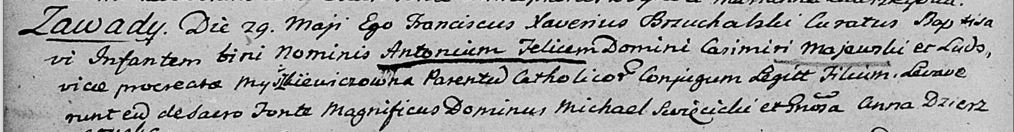 Zawady. Die 29. Maji Ego Franciscus Xaverius Brzuchalski Curatus Baptisa
vi Infantem bini Nominis Antonium Felicem Domini Casimiri Majewski et Ludo,
vicæ procreatæ Myśkiewiczowna Parentū Catholicor̃ Conjugum Legitt Filium. Levave
runt eūd de Sacro Fonte Magnificus Dominus Michael Swięcicki et Anna Dzierz